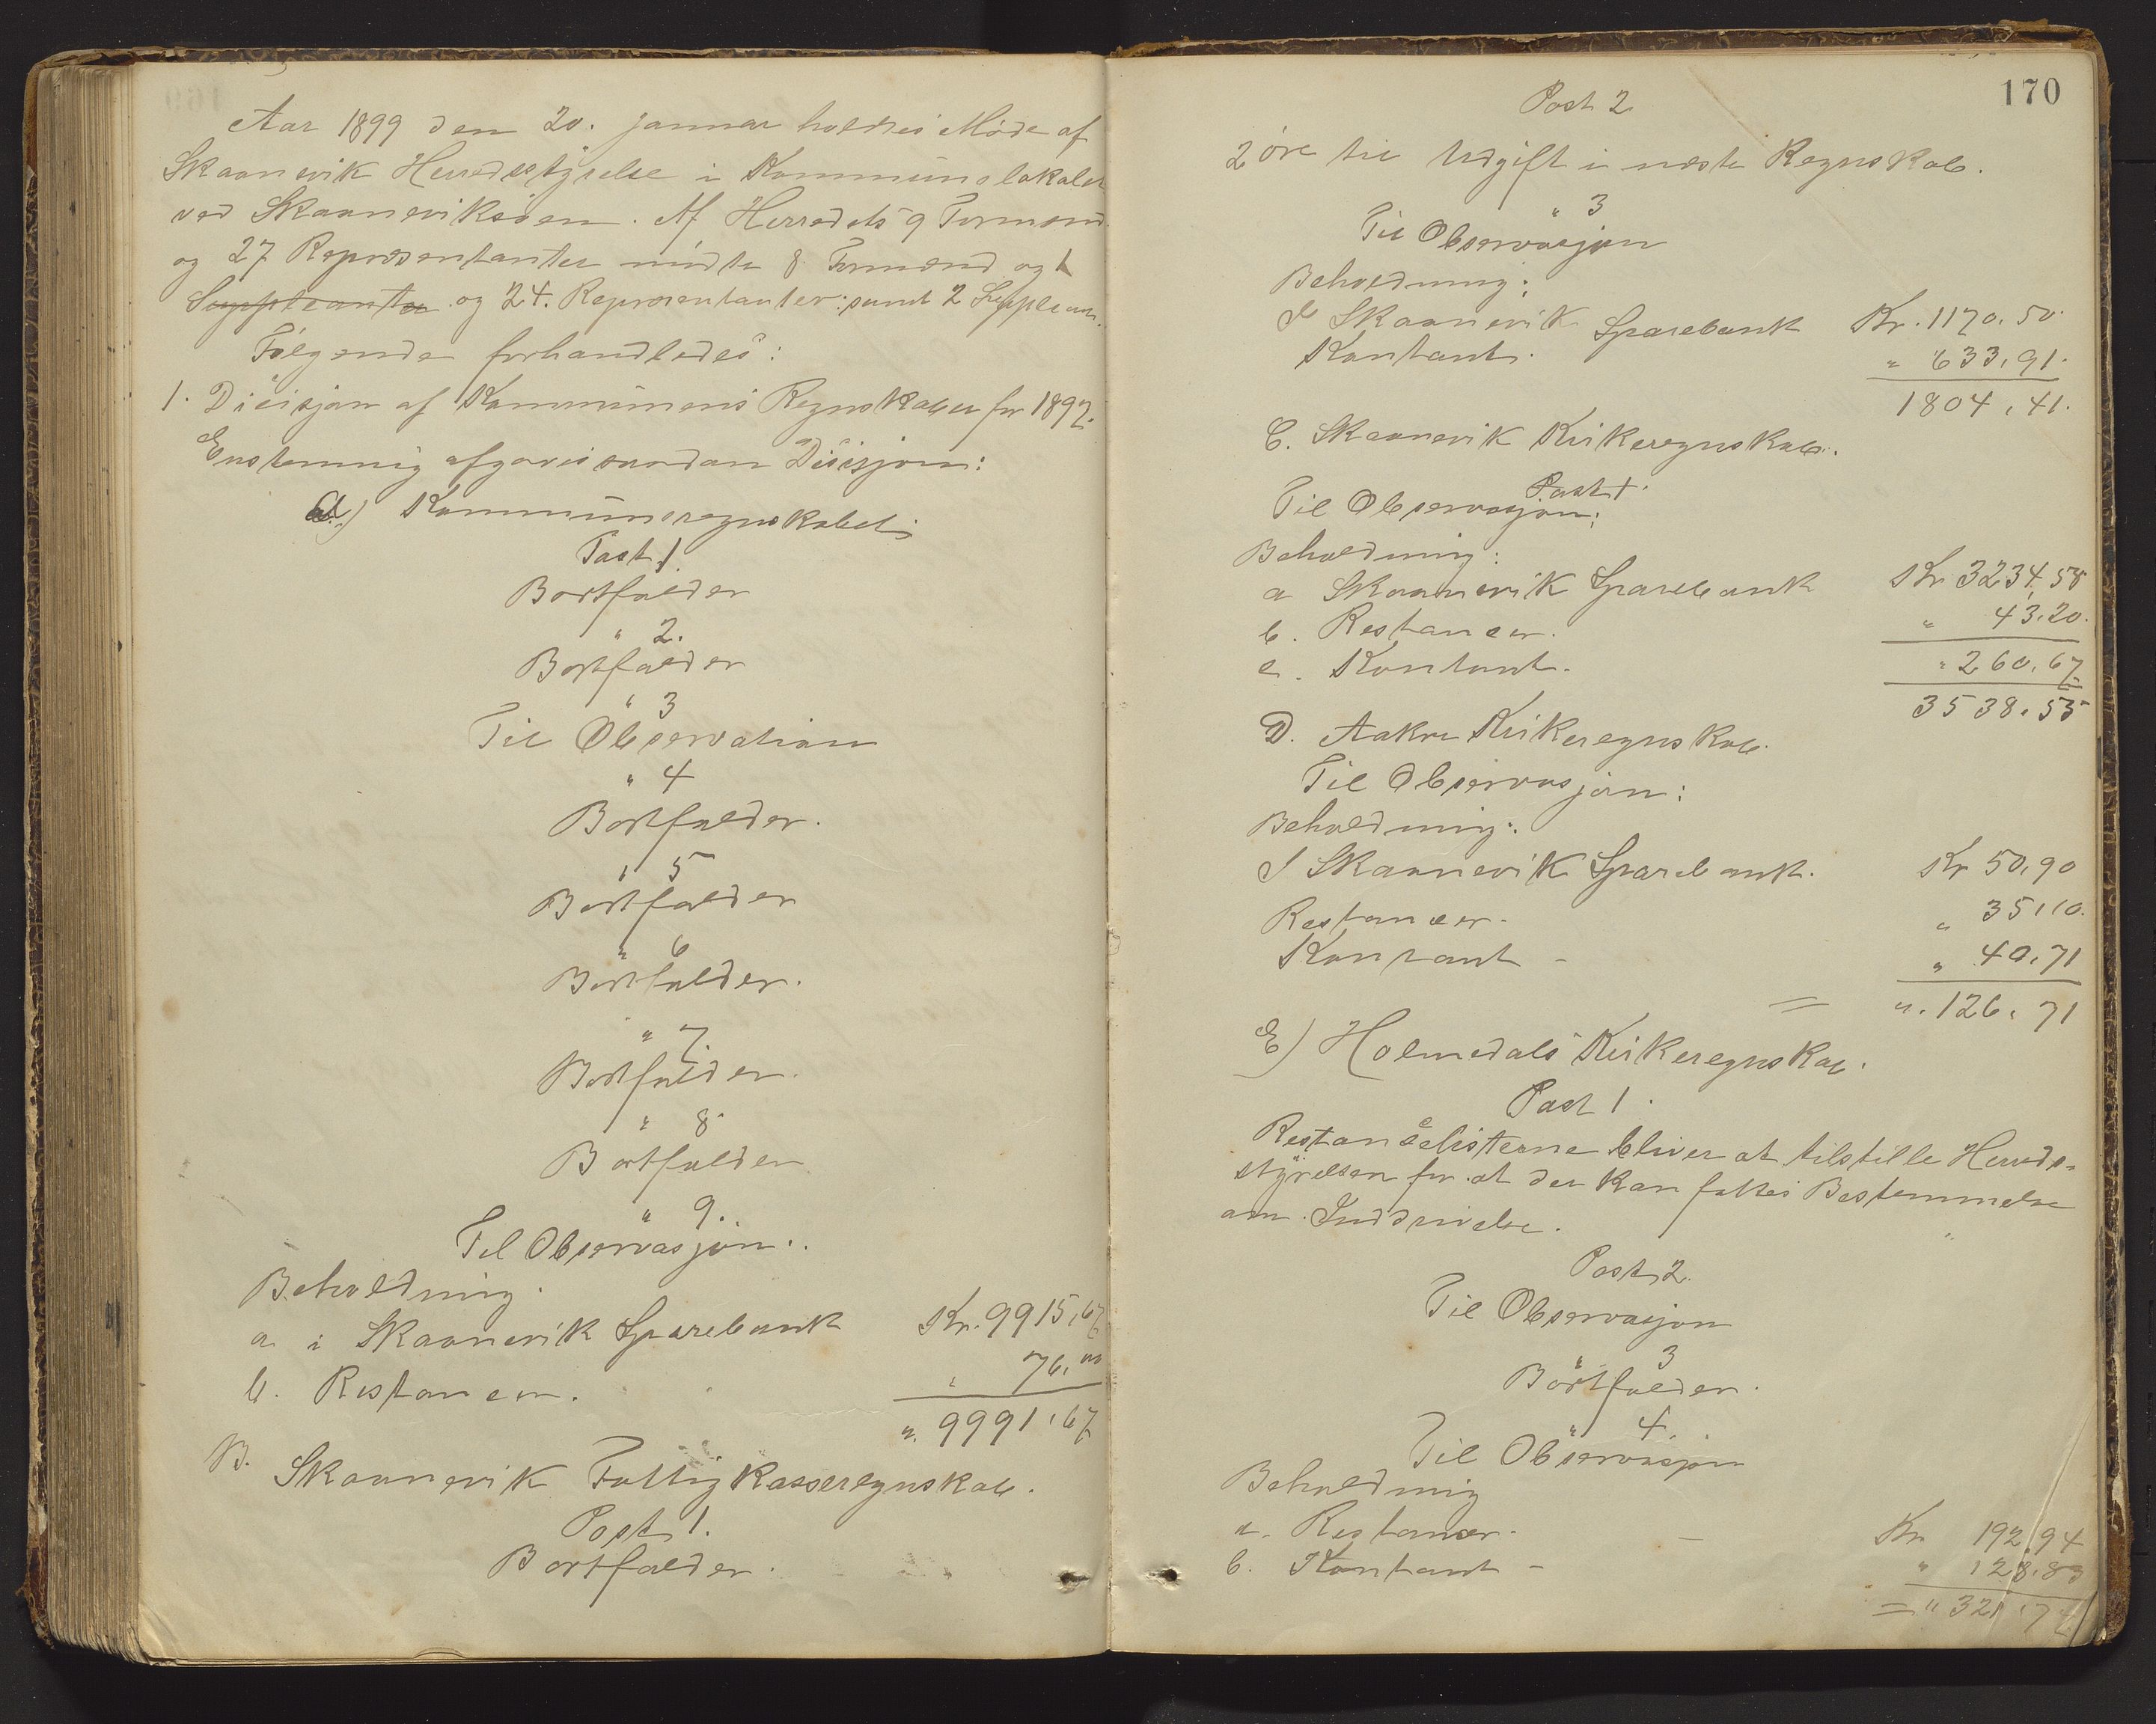 Aar 1899 den 20. januar holdtes Møde af
Skaanevik Herredstyrelse i Kommunelokalet
ved Skaaneviksøen. Af Herredets 9 Formænd
og 27 Repræsentanter mødte 8 Formænd og 1
Suppleanter og 24. Repræsentanter: samt 2 Supplean.
Følgende forhandledes:
1. Disisjon af Kommunens Regnskaber for 1897.
Enstemmig afgaves saadan Disisjon:
A.) Kommuneregnskabet
Post 1.
Bortfalder
" 2.
Bortfalder
" 3
Til Observation
" 4
Bortfalder.
" 5
Bortfalder
" 6
Bortfalder.
" 7.
Bortfalder.
" 8
Bortfalder
" 9.
Til Observasjon.
Beholdning.
a i Skaanevik Sparebank Kr. 9915,67
b. Restancer. " 76,00
". 9991,67
B. Skaanevik Fattigkasseregnskab.
Post 1.
Bortfalder.
170
Post 2
2 øre til Udgift i næste Regnskab.
" 3
Til Observasjon
Beholdning:
I Skaanevik Sparebank Kr. 1170.50.
Kontant. " 633,91.
1804,41.
C. Skaanevik Kirkeregnskab.
Post 1.
Til Observasjon:
Beholdning:
a Skaanevik Sparebank Kr 3234,58
b. Restancer. " 43.20.
c. Kontant. " 260,67
3538.55
D. Aakre Kirkeregnskab.
Til Observasjon:
Beholdning:
I Skaanevik Sparebank. Kr 50,90
Restancer. " 35,10.
Kontant - " 40,71
= ". 126,71
E) Holmedals Kirkeregnskab.
Post 1.
Restancelisterne bliver at tilstille Herreds-
styrelsen for at der kan fattes Bestemmelse
om Inddrivelse.
Post 2.
Til Observasjon
" 3
Bortfalder.
" 4.
Til Observasjon
Beholdning
a. Restancer. - Kr 192,94
b. Kontant - " 128,83
= " 321,77